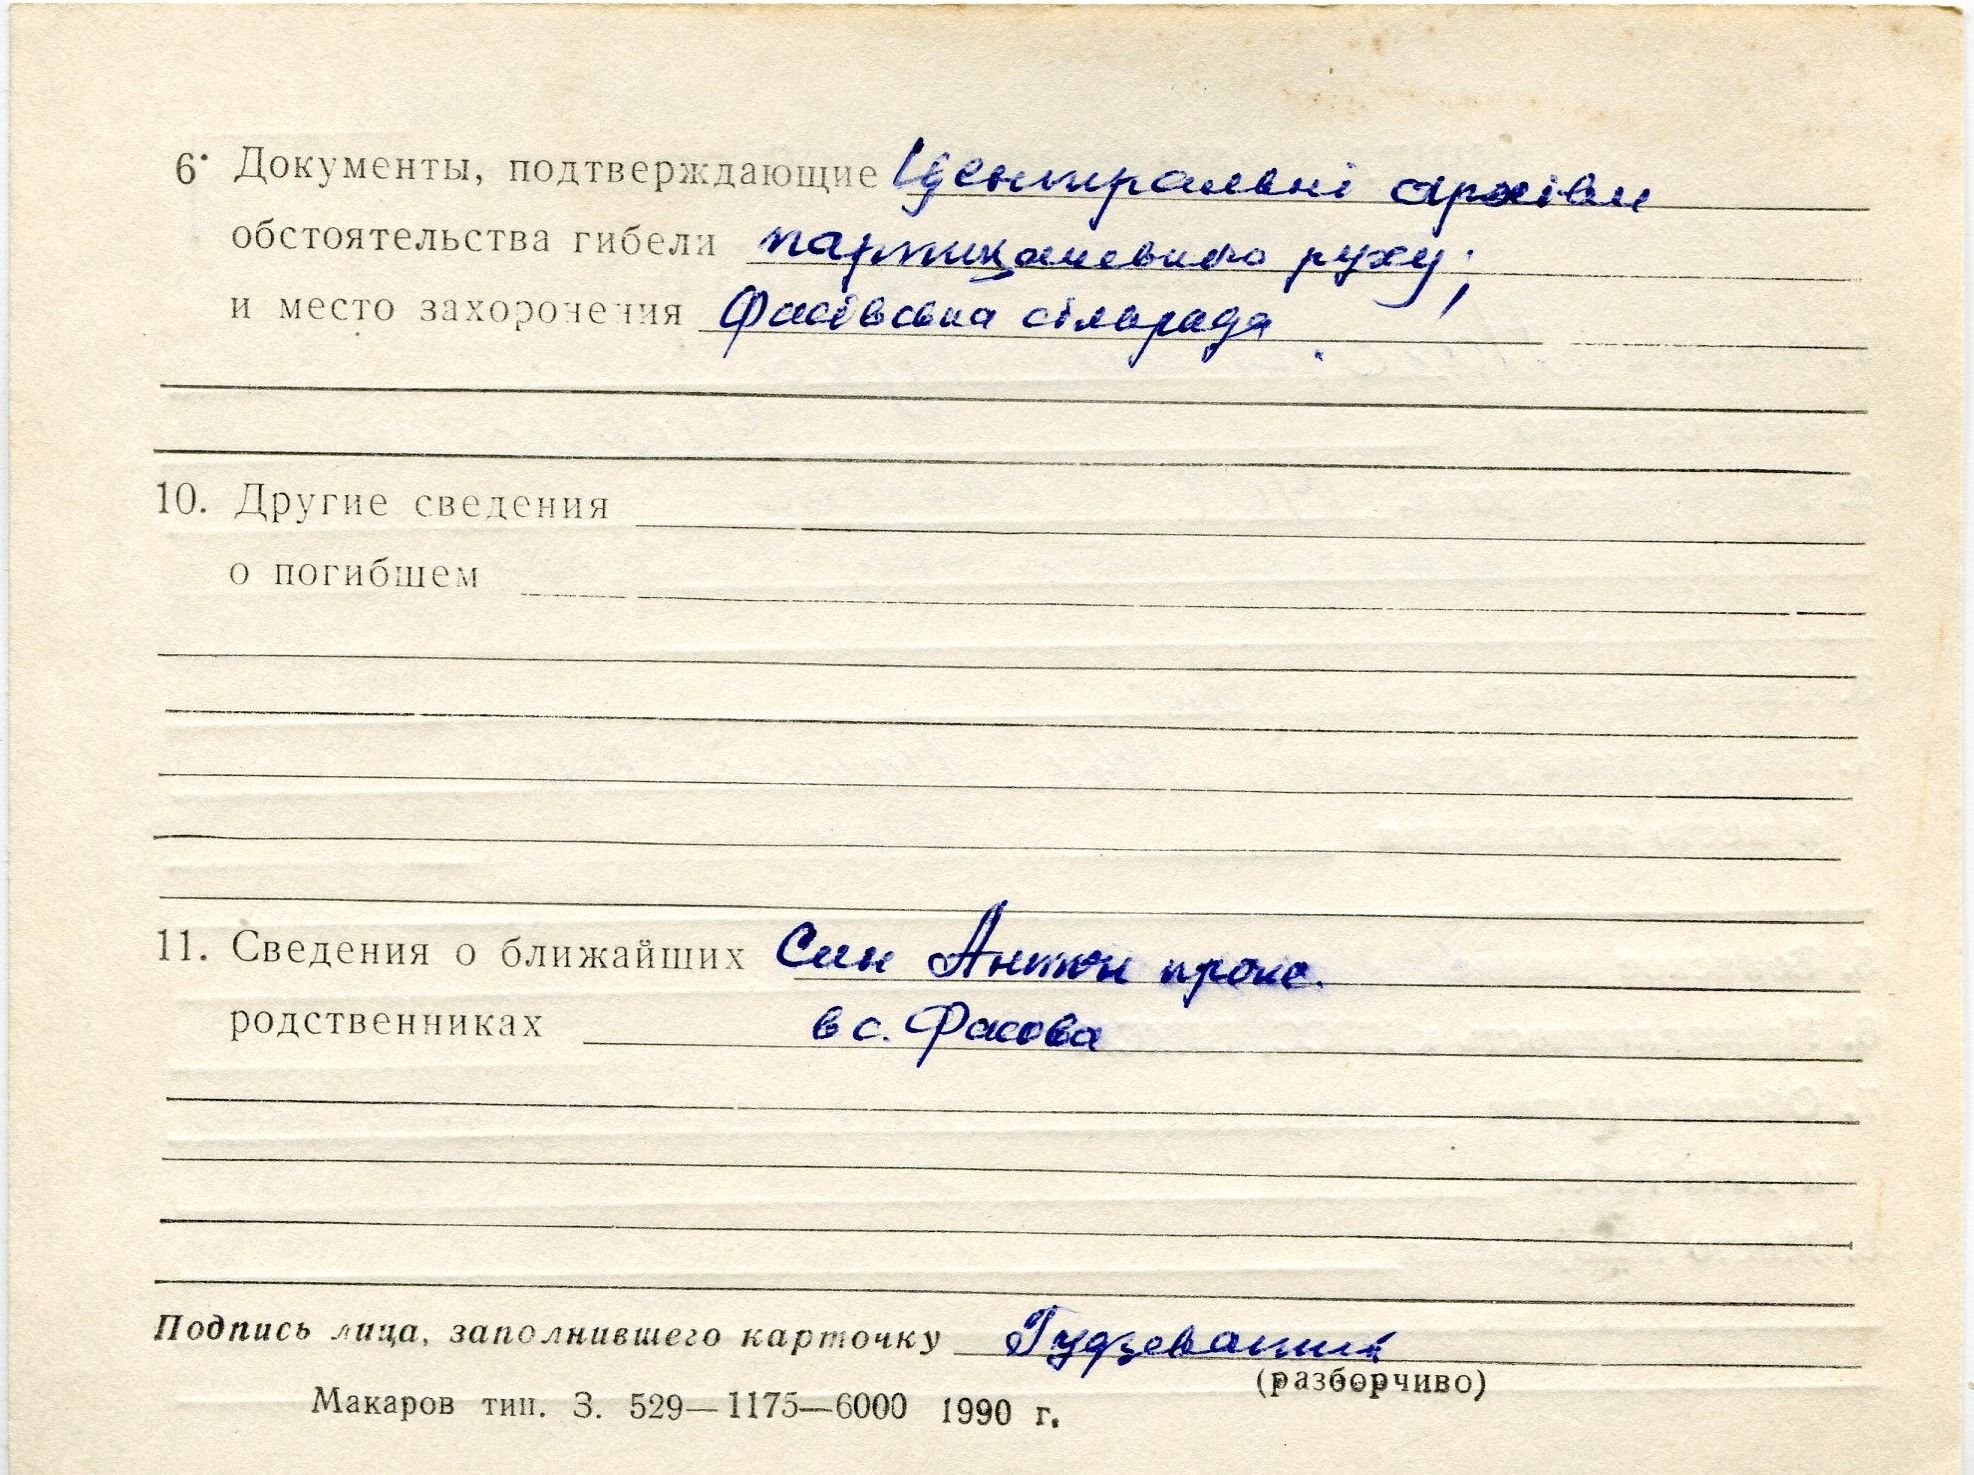 6. Документы, подтверждающие Центральні архіви
обстоятельства гибели партизанського руху;
и место захоронения Фасівська сільрада
10. Другие сведения
о погибшем
11. Сведения о ближайших Син Антон прож.
родственниках в с. Фасова
Подпись лица, заполнившего карточку
(разборчиво)
Макаров тип. З. 529—1175—6000 1990 г.